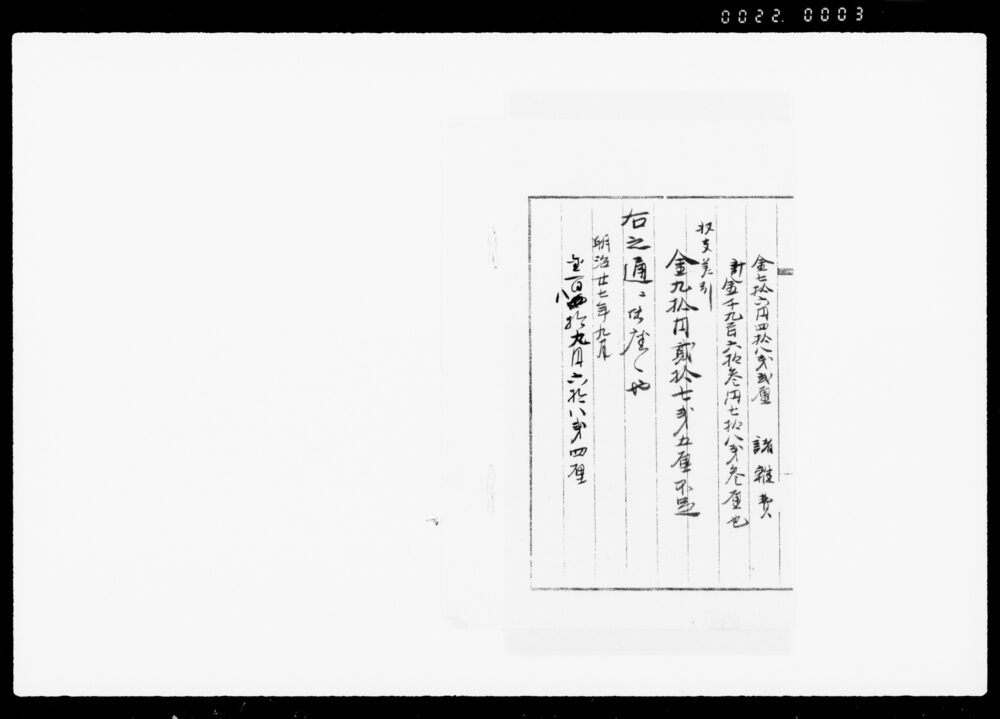 0022. 0003
金七拾六円四拾八銭弐厘 諸雑費
計金千九百六拾参円七拾八銭参厘也
収支差引
金九拾円弐拾七銭五厘不足
右之通御座候也
明治廿七年九月
金百四拾九円六拾八銭四厘
八